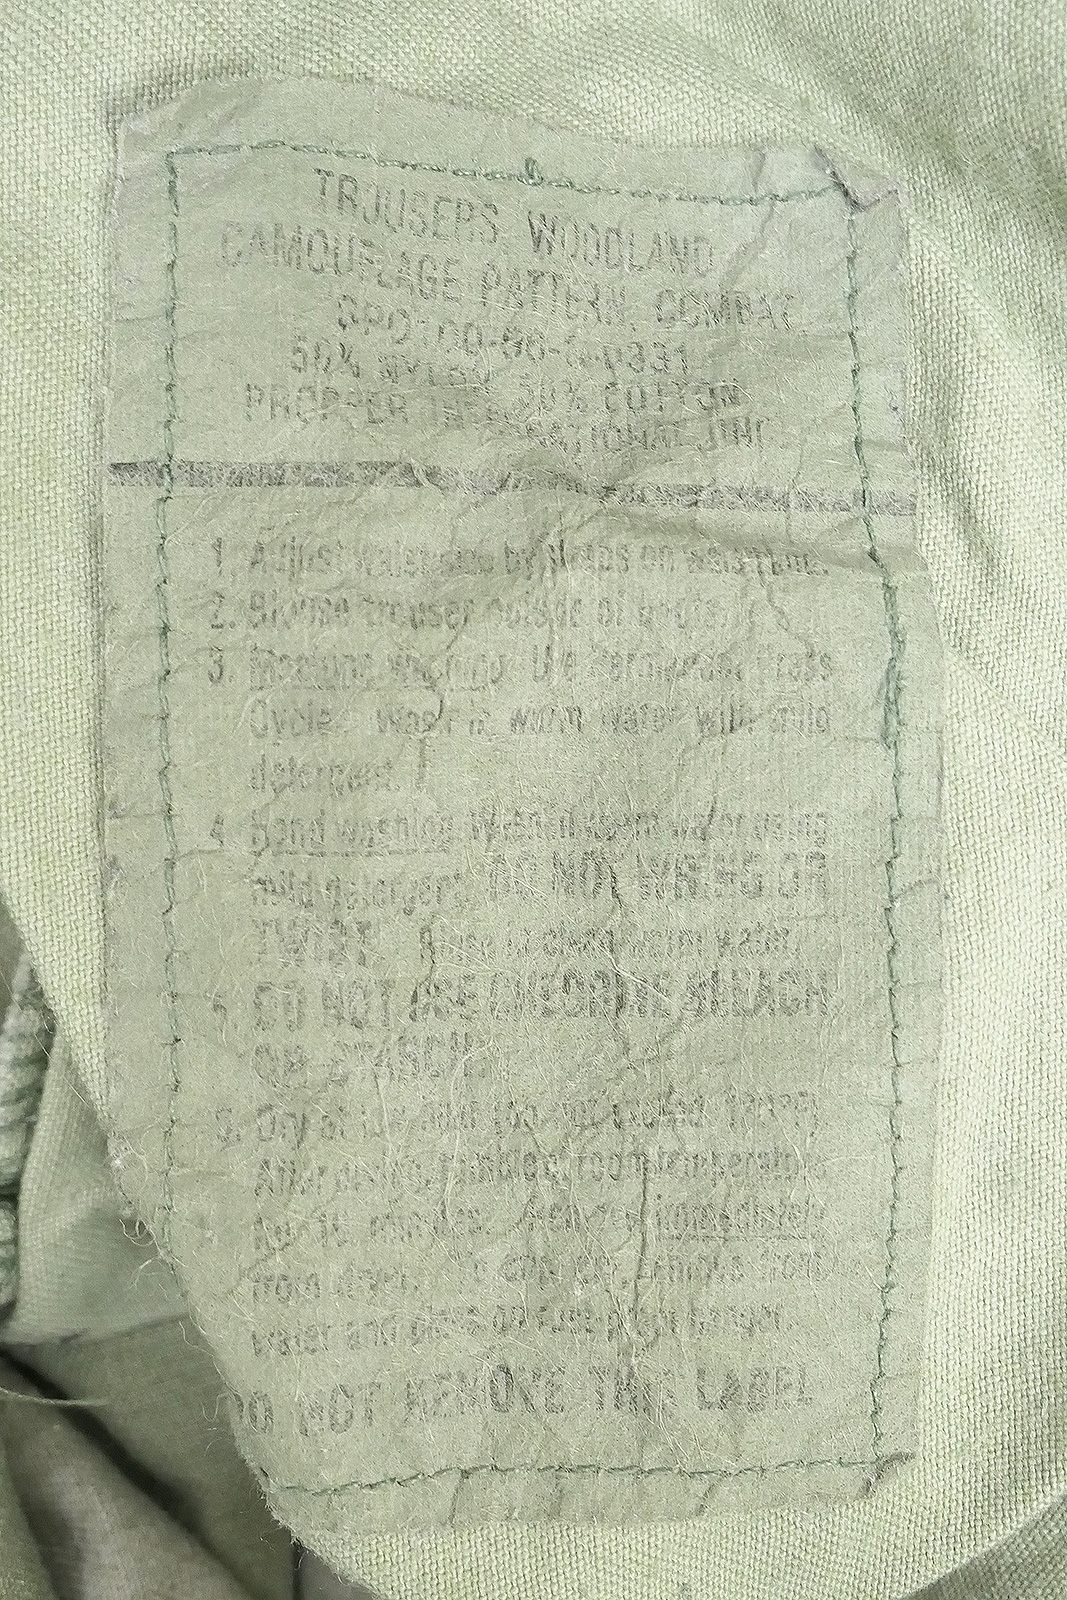 TROUSERS, WOODLAND
CAMOUFLAGE PATTERN, COMBAT,
50% NYLON 50% COTTON
PROPPER INTERNATIONAL, INC.
1. Adjust waist size by straps on waistband.
2. Blouse trouser outside of boots.
3. Machine washing: Use Permanent Press
Cycle. Wash in warm water with mild
detergent.
4. Hand washing: Wash in warm water using
mild detergent. DO NOT WRING OR
TWIST. Rinse in clean warm water.
5. DO NOT USE CHLORINE BLEACH
OR STARCH.
6. Dry at low heat (do not exceed
After drying, tumble at room temperature
for 10 minutes. Remove immediately
from dryer. To drip dry, remove from
water and place on rust-proof hanger.
DO NOT REMOVE THIS LABEL